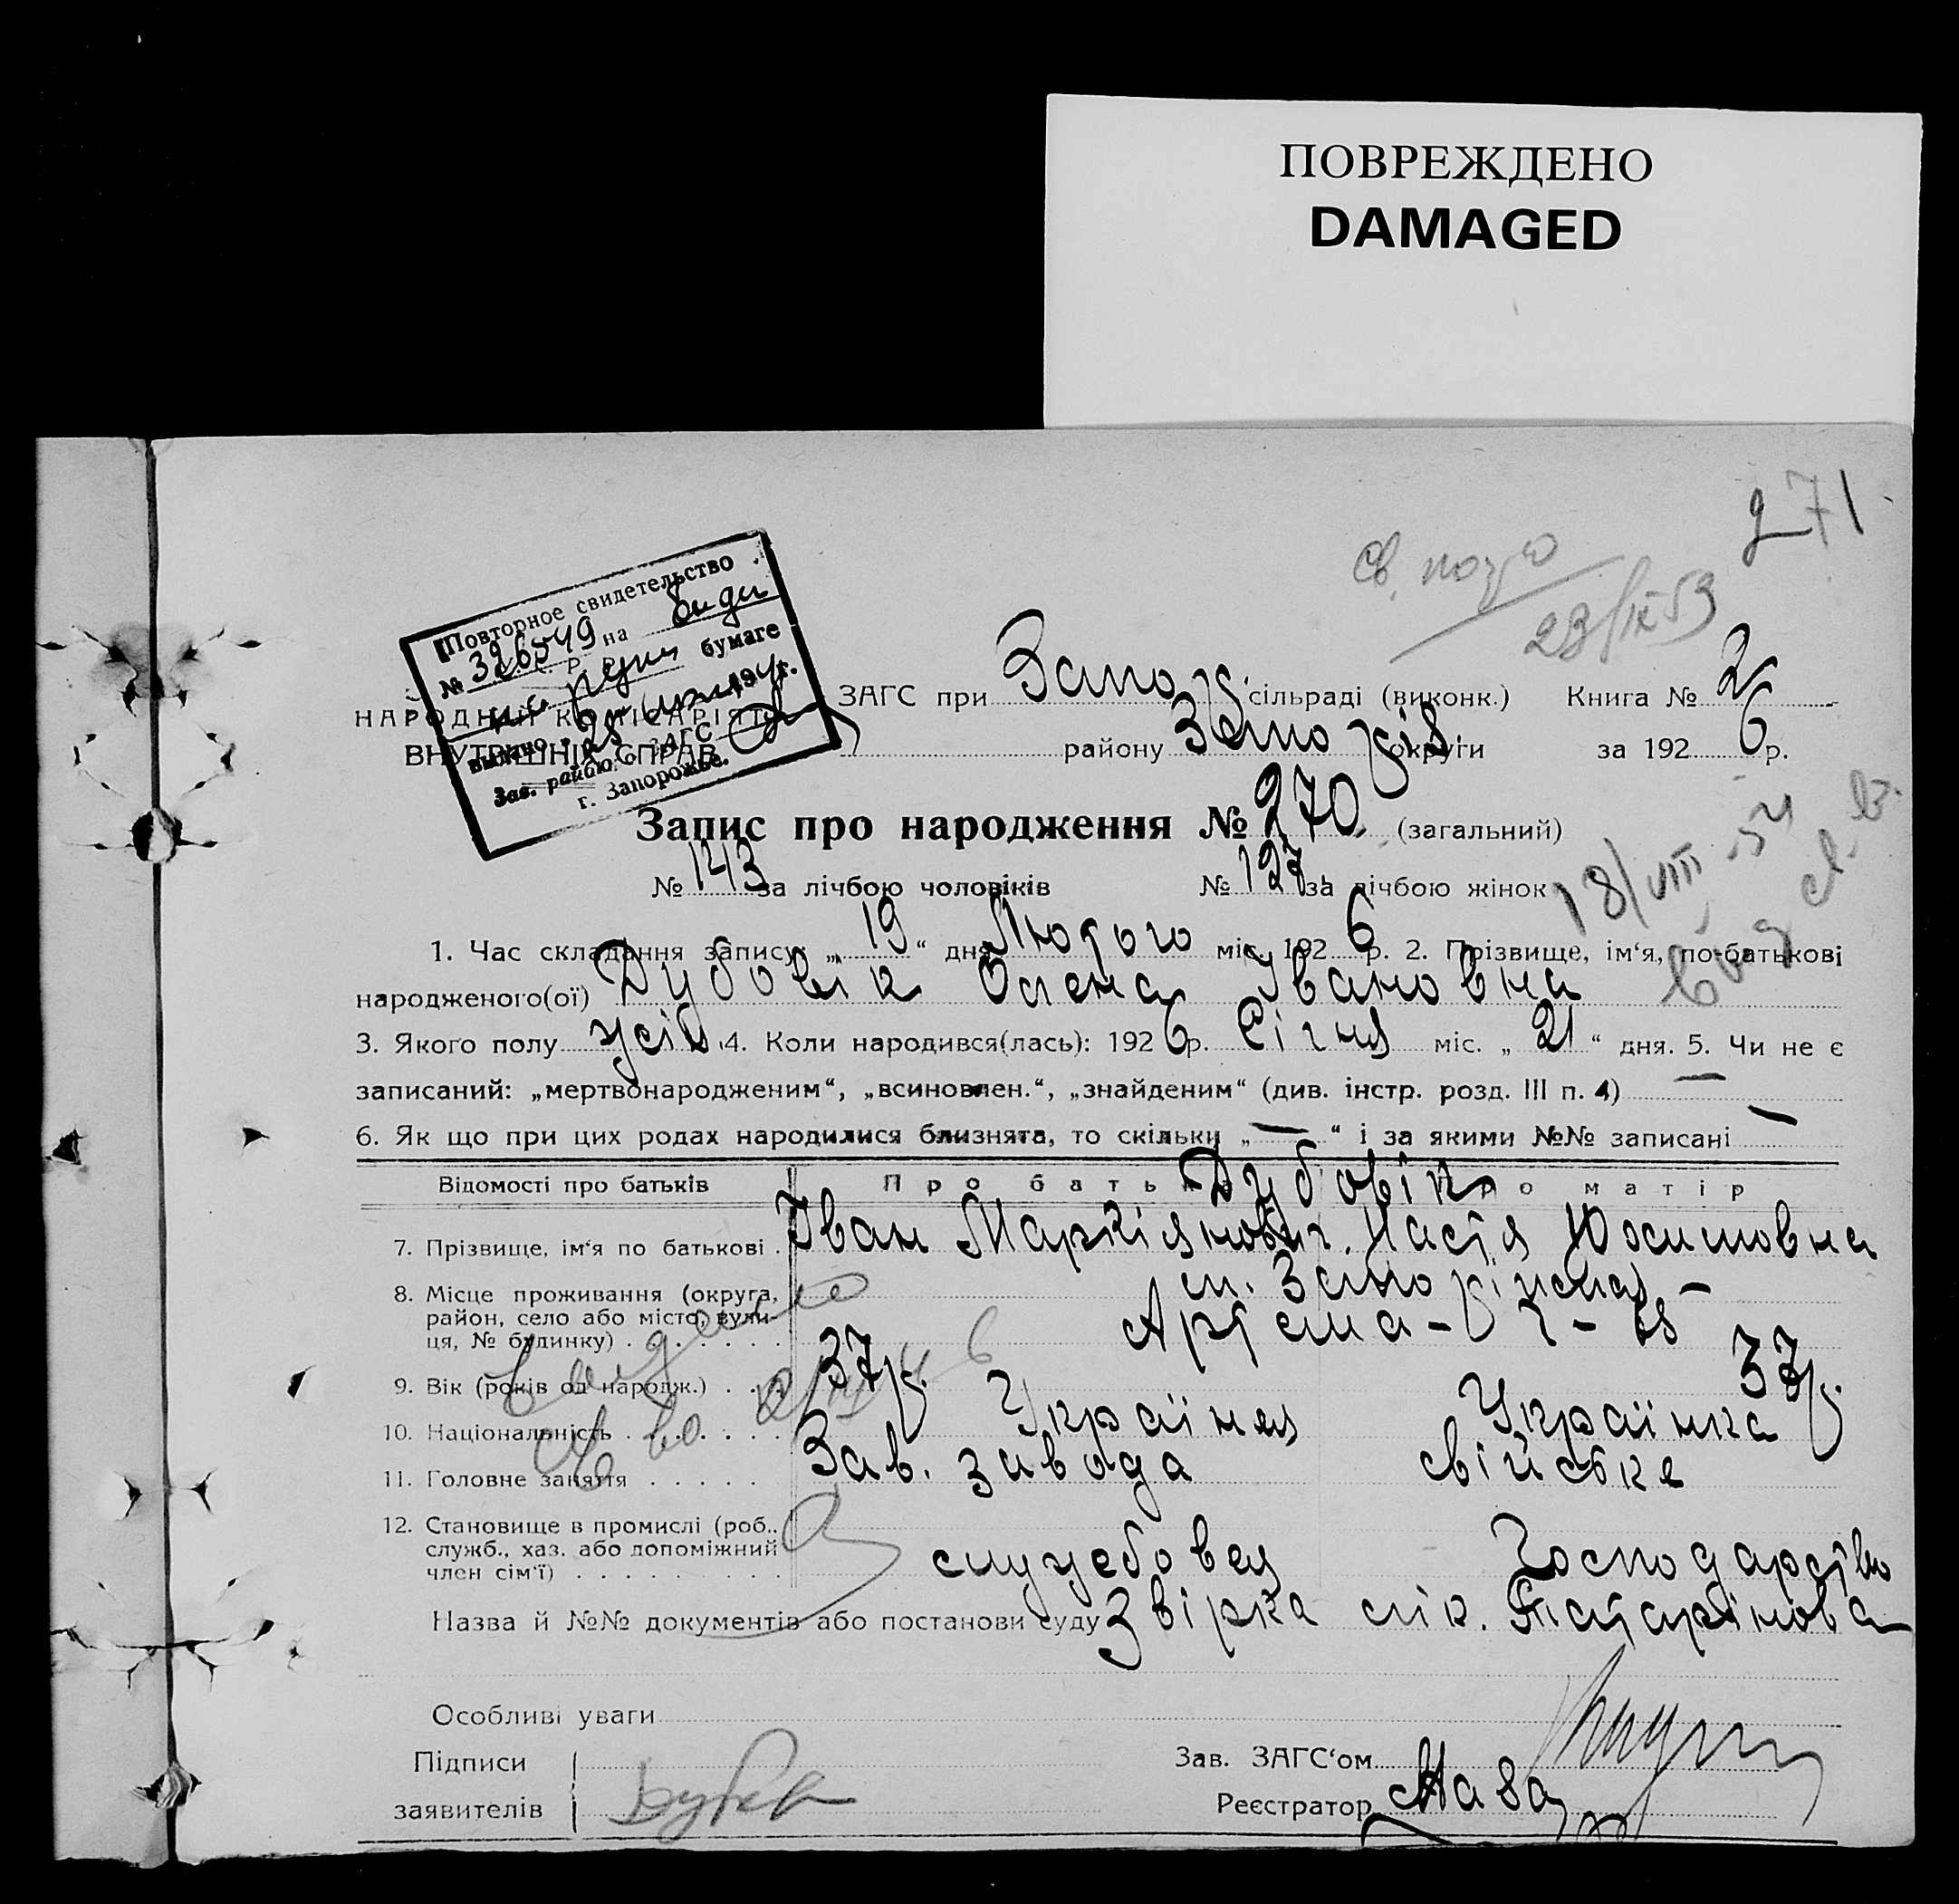 ПОВРЕЖДЕНО
DAMAGED
271
23/IX 53
Повторное свидетельство
№ 326549 на
бумаге
г. Запорожье.
НАРОДНИЙ КОМІСАРІЯТ
ВНУТРІШНІХ СПРАВ
ЗАГС при Запоріж. сільраді (виконк.) Книга № 2
району Запоріз. округи за 1926 р.
Запис про народження № 270 (загальний)
№ 143 за лічбою чоловіків № 127 за лічбою жінок
18/VIII-54
1. Час складання запису: „ 19 “ дня Лютого міс. 1926 р. 2. Прізвище, ім‘я, по-батькові
народженого(ої) Дубовік Олена Івановна
3. Якого полу жін. 4. Коли народився(лась): 1926 р. Січня міс. „ 21 “ дня. 5. Чи не є
записаний: „мертвонародженим“, „всиновлен.“, „знайденим“ (див. інстр. розд. III п. 4) —
6. Як що при цих родах народилися близнята, то скільки „ — “ і за якими №№ записані —
Відомості про батьків Про батька Про матір
Дубовік
7. Прізвище, ім‘я по батькові . Іван Маркіянович. Настя Юхимовна
8. Місце проживання (округа, м. Запоріжжя –
район, село або місто, вули-
ця, № будинку) . . . . . . Артема
9. Вік (років од народж.) . . . 37 р. 37 р.
10. Національність . . . . . . Українец Українка
11. Головне заняття . . . . . Зав. завода свійське
12. Становище в промислі (роб.,
служб., хаз. або допоміжний службовец Господарство
член сім‘ї) . . . . . . . . .
Назва й №№ документів або постанови суду Звірка лік. Татарінова
Особливі уваги
Підписи Зав. ЗАГС‘ом
заявителів Реєстратор